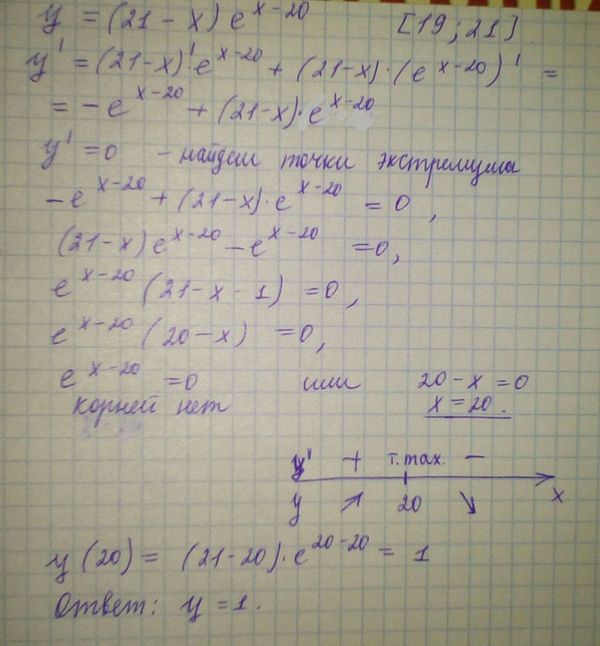 y = (21 - x) e^{x-20} [19; 21]
y' = (21-x)' e^{x-20} + (21-x)·(e^{x-20})' =
= -e^{x-20} + (21-x)·e^{x-20}
y' = 0 - найдем точки экстремума
-e^{x-20} + (21-x)·e^{x-20} = 0,
(21-x) e^{x-20} - e^{x-20} = 0,
e^{x-20} (21-x-1) = 0,
e^{x-20} (20-x) = 0,
e^{x-20} = 0 или 20-x = 0
корней нет x = 20.
y' + т.max. -
y ↗ 20 ↘ x
y (20) = (21-20)·e^{20-20} = 1
Ответ: y = 1.